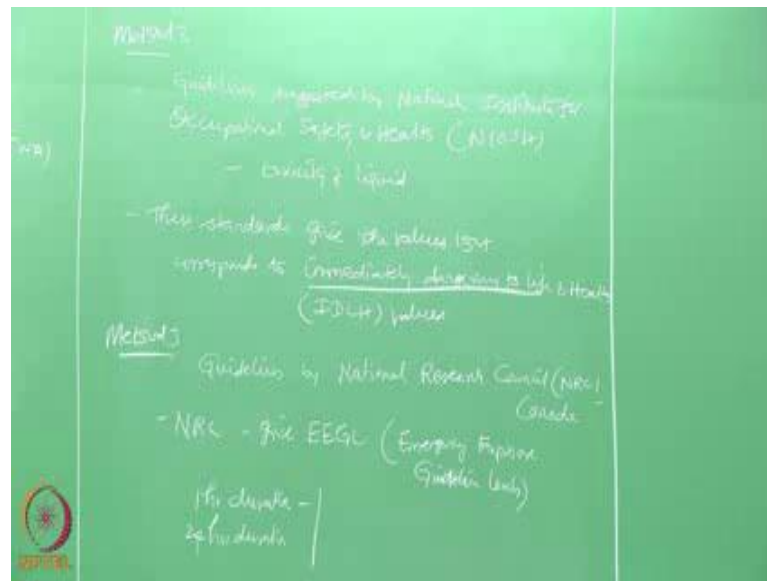 TWA)
Method 2
Guidelines suggested by National Institute for
Occupational Safety & Health (NIOSH)
- toxicity of liquid
- These standards give the values that
corresponds to Immediately dangerous to life & Health
(IDLH) values
Method 3
Guidelines by National Research Council (NRC)
Canada
- NRC - give EEGL (Emergency Exposure
Guideline Levels)
1 hr duration -
24 hrs duration